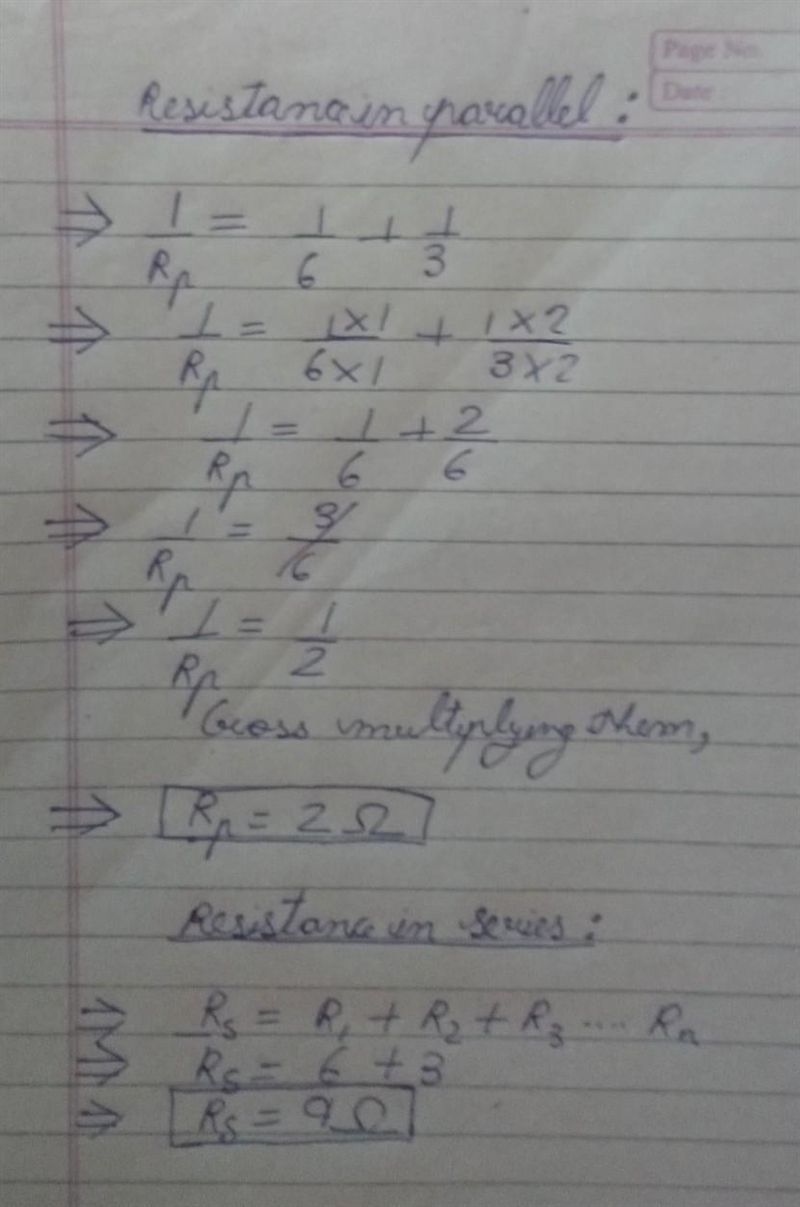 Page No.
Date
Resistance in parallel :
⇒ 1/Rp = 1/6 + 1/3
⇒ 1/Rp = 1×1/6×1 + 1×2/3×2
⇒ 1/Rp = 1/6 + 2/6
⇒ 1/Rp = 3/6
⇒ 1/Rp = 1/2
Cross multiplying them,
⇒ Rp = 2 Ω
Resistance in series :
⇒ Rs = R1 + R2 + R3 .... Rn
⇒ Rs = 6 + 3
⇒ Rs = 9 Ω